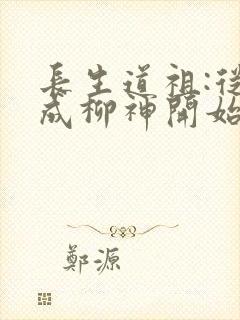 長生道祖:從
成柳神開始
鄭源